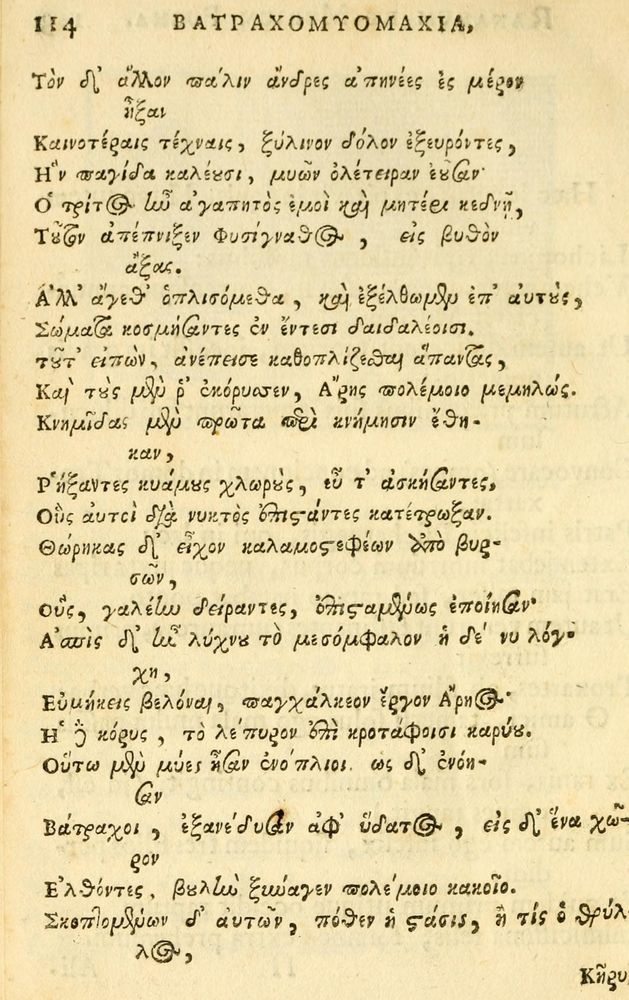 114 ΒΑΤΡΑΧΟΜΥΟΜΑΧΙΑ,
Τὸν δ' ἄλλον πάλιν ἄνδρες ἀπηνέες ἐς μέρον
ἦξαν
Καινοτέραις τέχναις, ξύλινον δόλον ἐξευρόντες,
Η῝ν παγίδα καλέουσι, μυῶν ὀλέτειραν ἐοῦσαν·
Ο῾ τρίτος ἦν ἀγαπητὸς ἐμοὶ καὶ μητέρι κεδνῇ,
Τοῦτον ἀπέπνιξεν Φυσίγναθος, εἰς βυθὸν
ἄξας.
Α᾿λλ' ἄγεθ' ὁπλισόμεθα, καὶ ἐξέλθωμεν ἐπ' αὐτοὺς,
Σώματα κοσμήσαντες ἐν ἔντεσι δαιδαλέοισι.
τοῦτ' εἰπὼν, ἀνέπεισε καθοπλίζεσθαι ἅπαντας,
Καὶ τοὺς μὲν ῥ' ἐκόρυσσεν, Α῎ρης πολέμοιο μεμηλώς.
Κνημῖδας μὲν πρῶτα περὶ κνήμησιν ἔθη-
καν,
Ρ῾ήξαντες κυάμους χλωροὺς, εὖ τ' ἀσκήσαντες,
Οὓς αὐτοὶ διὰ νυκτὸς ἐπιστάντες κατέτρωξαν.
Θώρηκας δ' εἶχον καλαμοστεφέων ἀπὸ βυρ-
σῶν,
Οὓς, γαλέην δείραντες, ἐπισταμένως ἐποίησαν·
Α᾿σπὶς δ' ἦν λύχνου τὸ μεσόμφαλον ἡ δέ νυ λόγ-
χη,
Εὐμήκεις βελόναι, παγχάλκεον ἔργον Α῎ρηος·
Η῾ δὲ κόρυς, τὸ λέπυρον ἐπὶ κροτάφοισι καρύου.
Οὕτω μὲν μύες ἦσαν ἐνόπλιοι. ὡς δ' ἐνόη-
σαν
Βάτραχοι, ἐξανέδυσαν ἀφ' ὕδατος, εἰς δ' ἕνα χῶ-
ρον
Ε᾿λθόντες, βουλὴν ξύναγεν πολέμοιο κακοῖο.
Σκοπτομένων δ' αὐτῶν, πόθεν ἡ στάσις, ἢ τίς ὁ θρύλ-
λος,
Κῆρυ